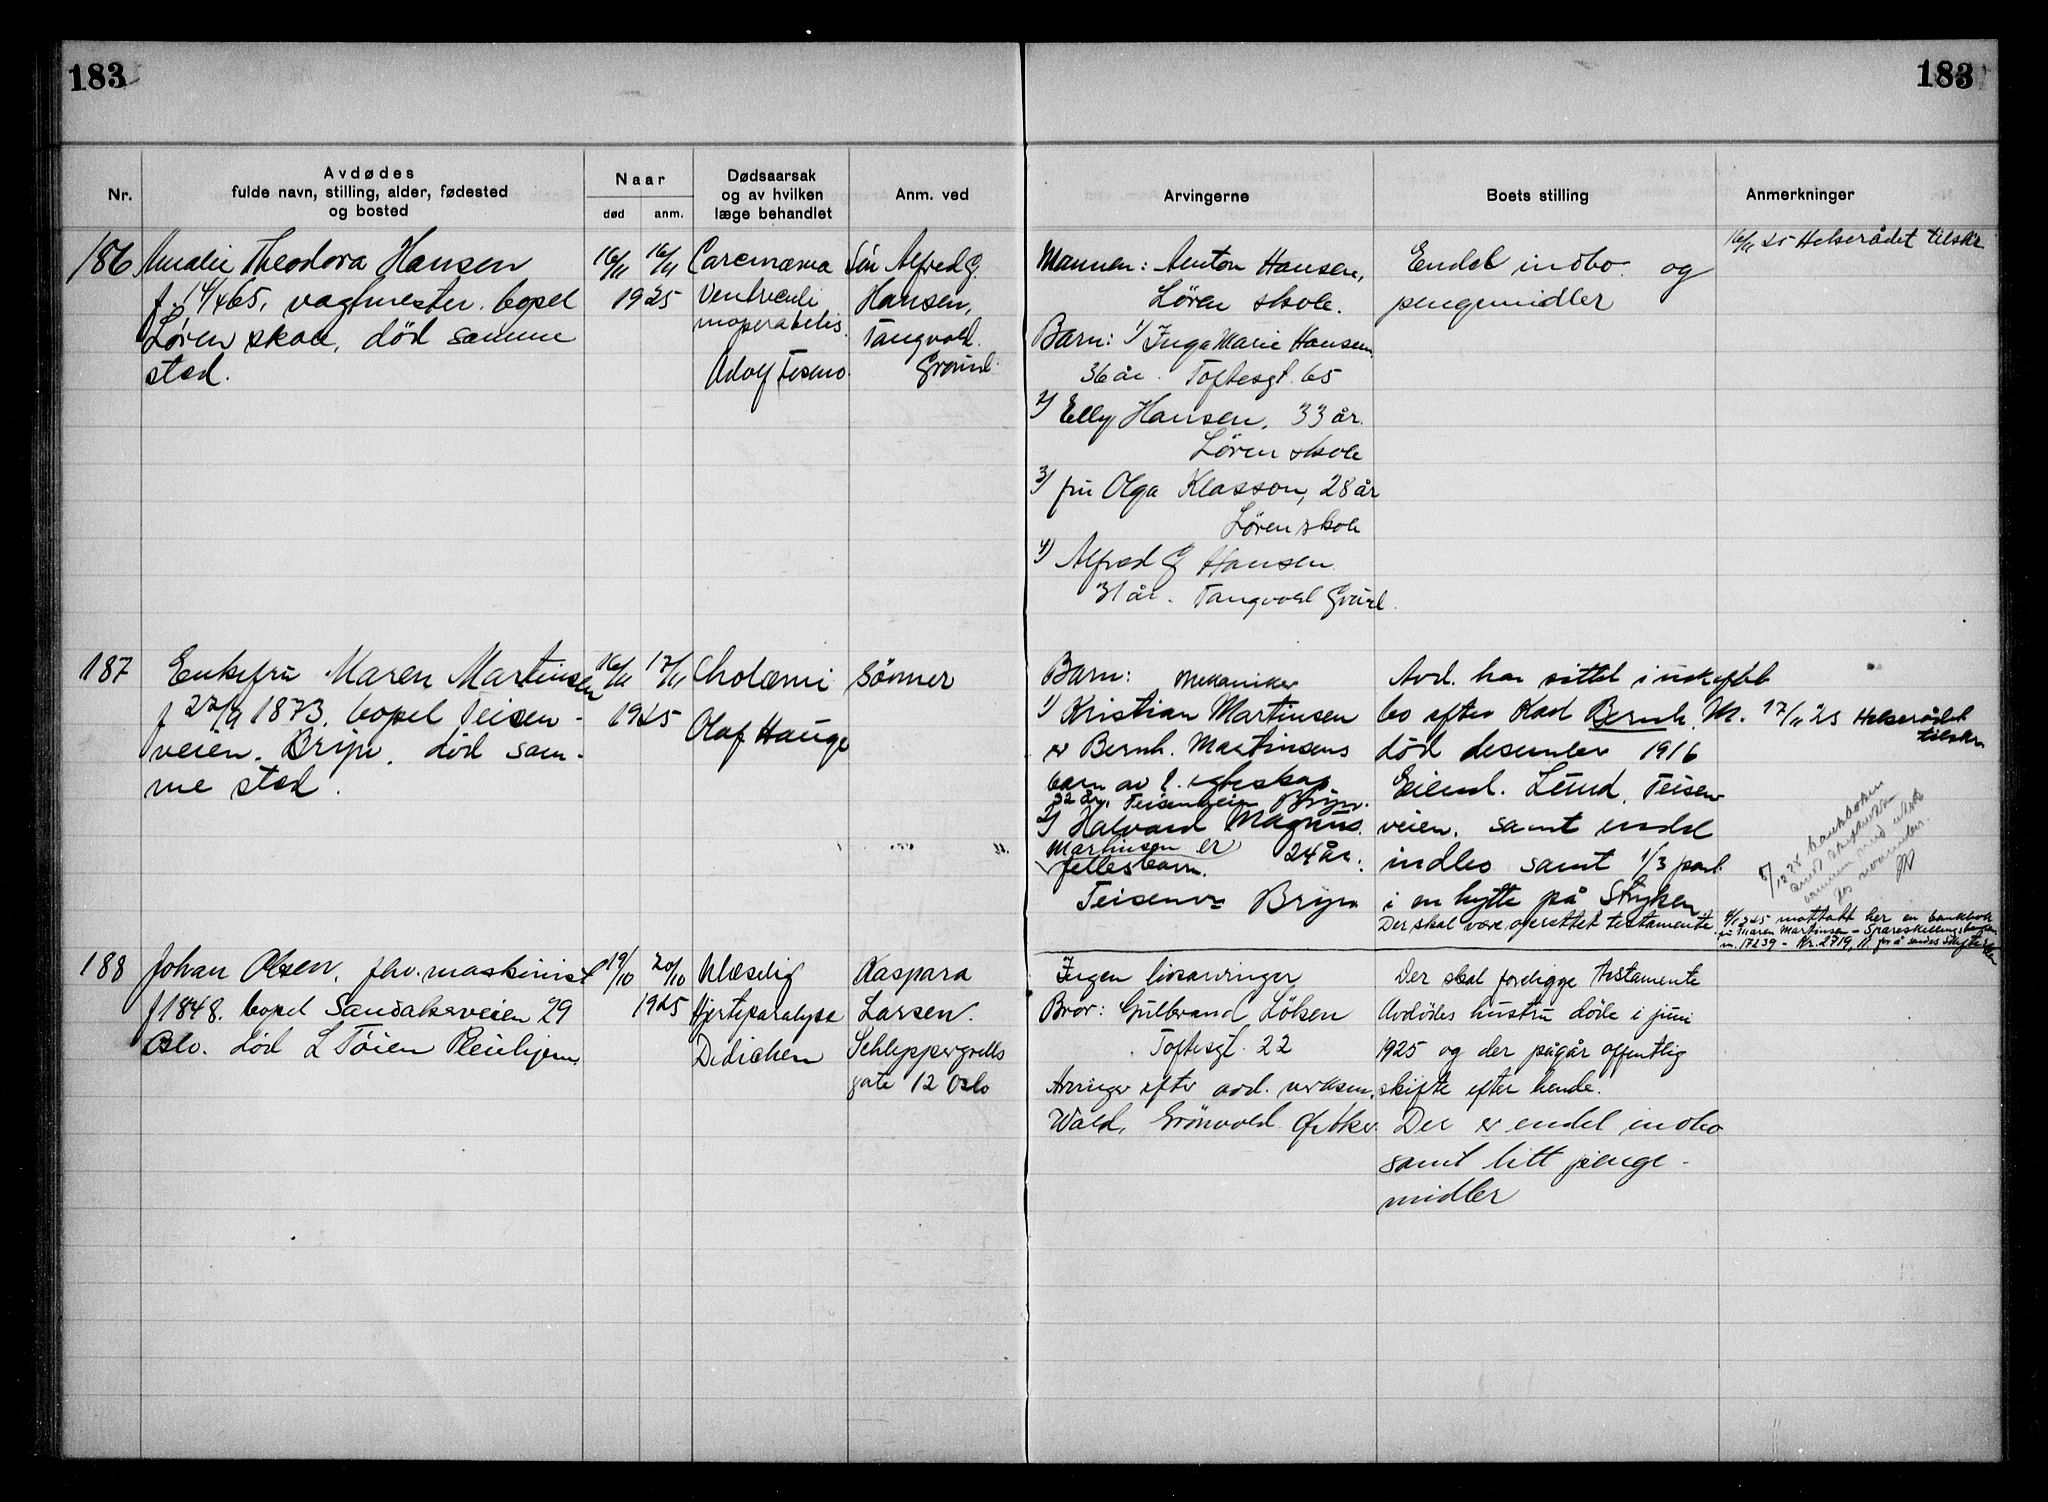 183
183
Nr.
Avdødes
fulde navn, stilling, alder, fødested
og bosted
Naar
død
anm.
Dødsaarsak
og av hvilken
læge behandlet
Anm. ved
Arvingerne
Boets stilling
Anmerkninger
186
Amalie Theodora Hansen
f 14/4 65, vagtmester. bopel
Løren skole, død samme
sted.
16/11 16/11
1925
Carcinoma
ventriculi
inoperabilis.
Adolf
Søn Alfred G
Hansen,
Tangvold
Grorud
Mannen: Anton Hansen,
Løren skole.
Barn: 1/ Inga Marie Hansen
36 år. Toftesgt. 65
2/ Elly Hansen, 33 år.
Løren skole
3/ fru Olga Klasson, 28 år
Løren skole
4) Alfred G Hansen
31 år. Tangvold Grorud.
Endel indbo og
pengemidler
16/11 25 Helserådet tilskr
187
Enkefru Maren Martinsen
f 27/9 1873, bopel Teisen-
veien. Bryn, død sam-
me sted.
16/11 17/11
1925
Cholæmi
Olaf Hauge
Sønner
Barn: Mekaniker
1) Kristian Martinsen
er Bernh. Martinsens
barn av 1. egteskap
32 år. Teisenveien Bryn.
2/ Halvard Magnus
Martinsen er 24 år.
fellesbarn.
Teisenv. Bryn
Avd. har sittet i uskiftet
bo efter Mad Bernh. M.
død desember 1916
Eiend. Lund, Teisen-
veien. samt endel
indbo samt 1/3 part
i en hytte på Stryken
Der skal være oprettet testamente
17/11 25 Helserådet
tilskr
8/12 25 bankboken
8/12 25 mottatt her en bankbok
Maren Martinsen - Spareskillingsbanken
nr. 17239 - Kr. 2719, 11 for å sendes Skifteretten
188
Johan Olsen, fhv. maskinist
f 1848. bopel Sandakerveien 29
Oslo. død L Tøien Pleiehjem.
19/10 20/10
1925
Ulæselig
Hjerteparalyse
Dedichen
Kaspara
Larsen.
Schleppegrells
gate 12 Oslo
Ingen livsarvinger
Bror: Gulbrand Løken
Toftesgt. 22
Arvinger efter avd.
Wald. Grönvold
Der skal foreligge testamente
Avdødes hustru døde i juni
1925 og der pågår offentlig
skifte efter hende.
Der er endel indbo
samt litt penge-
midler